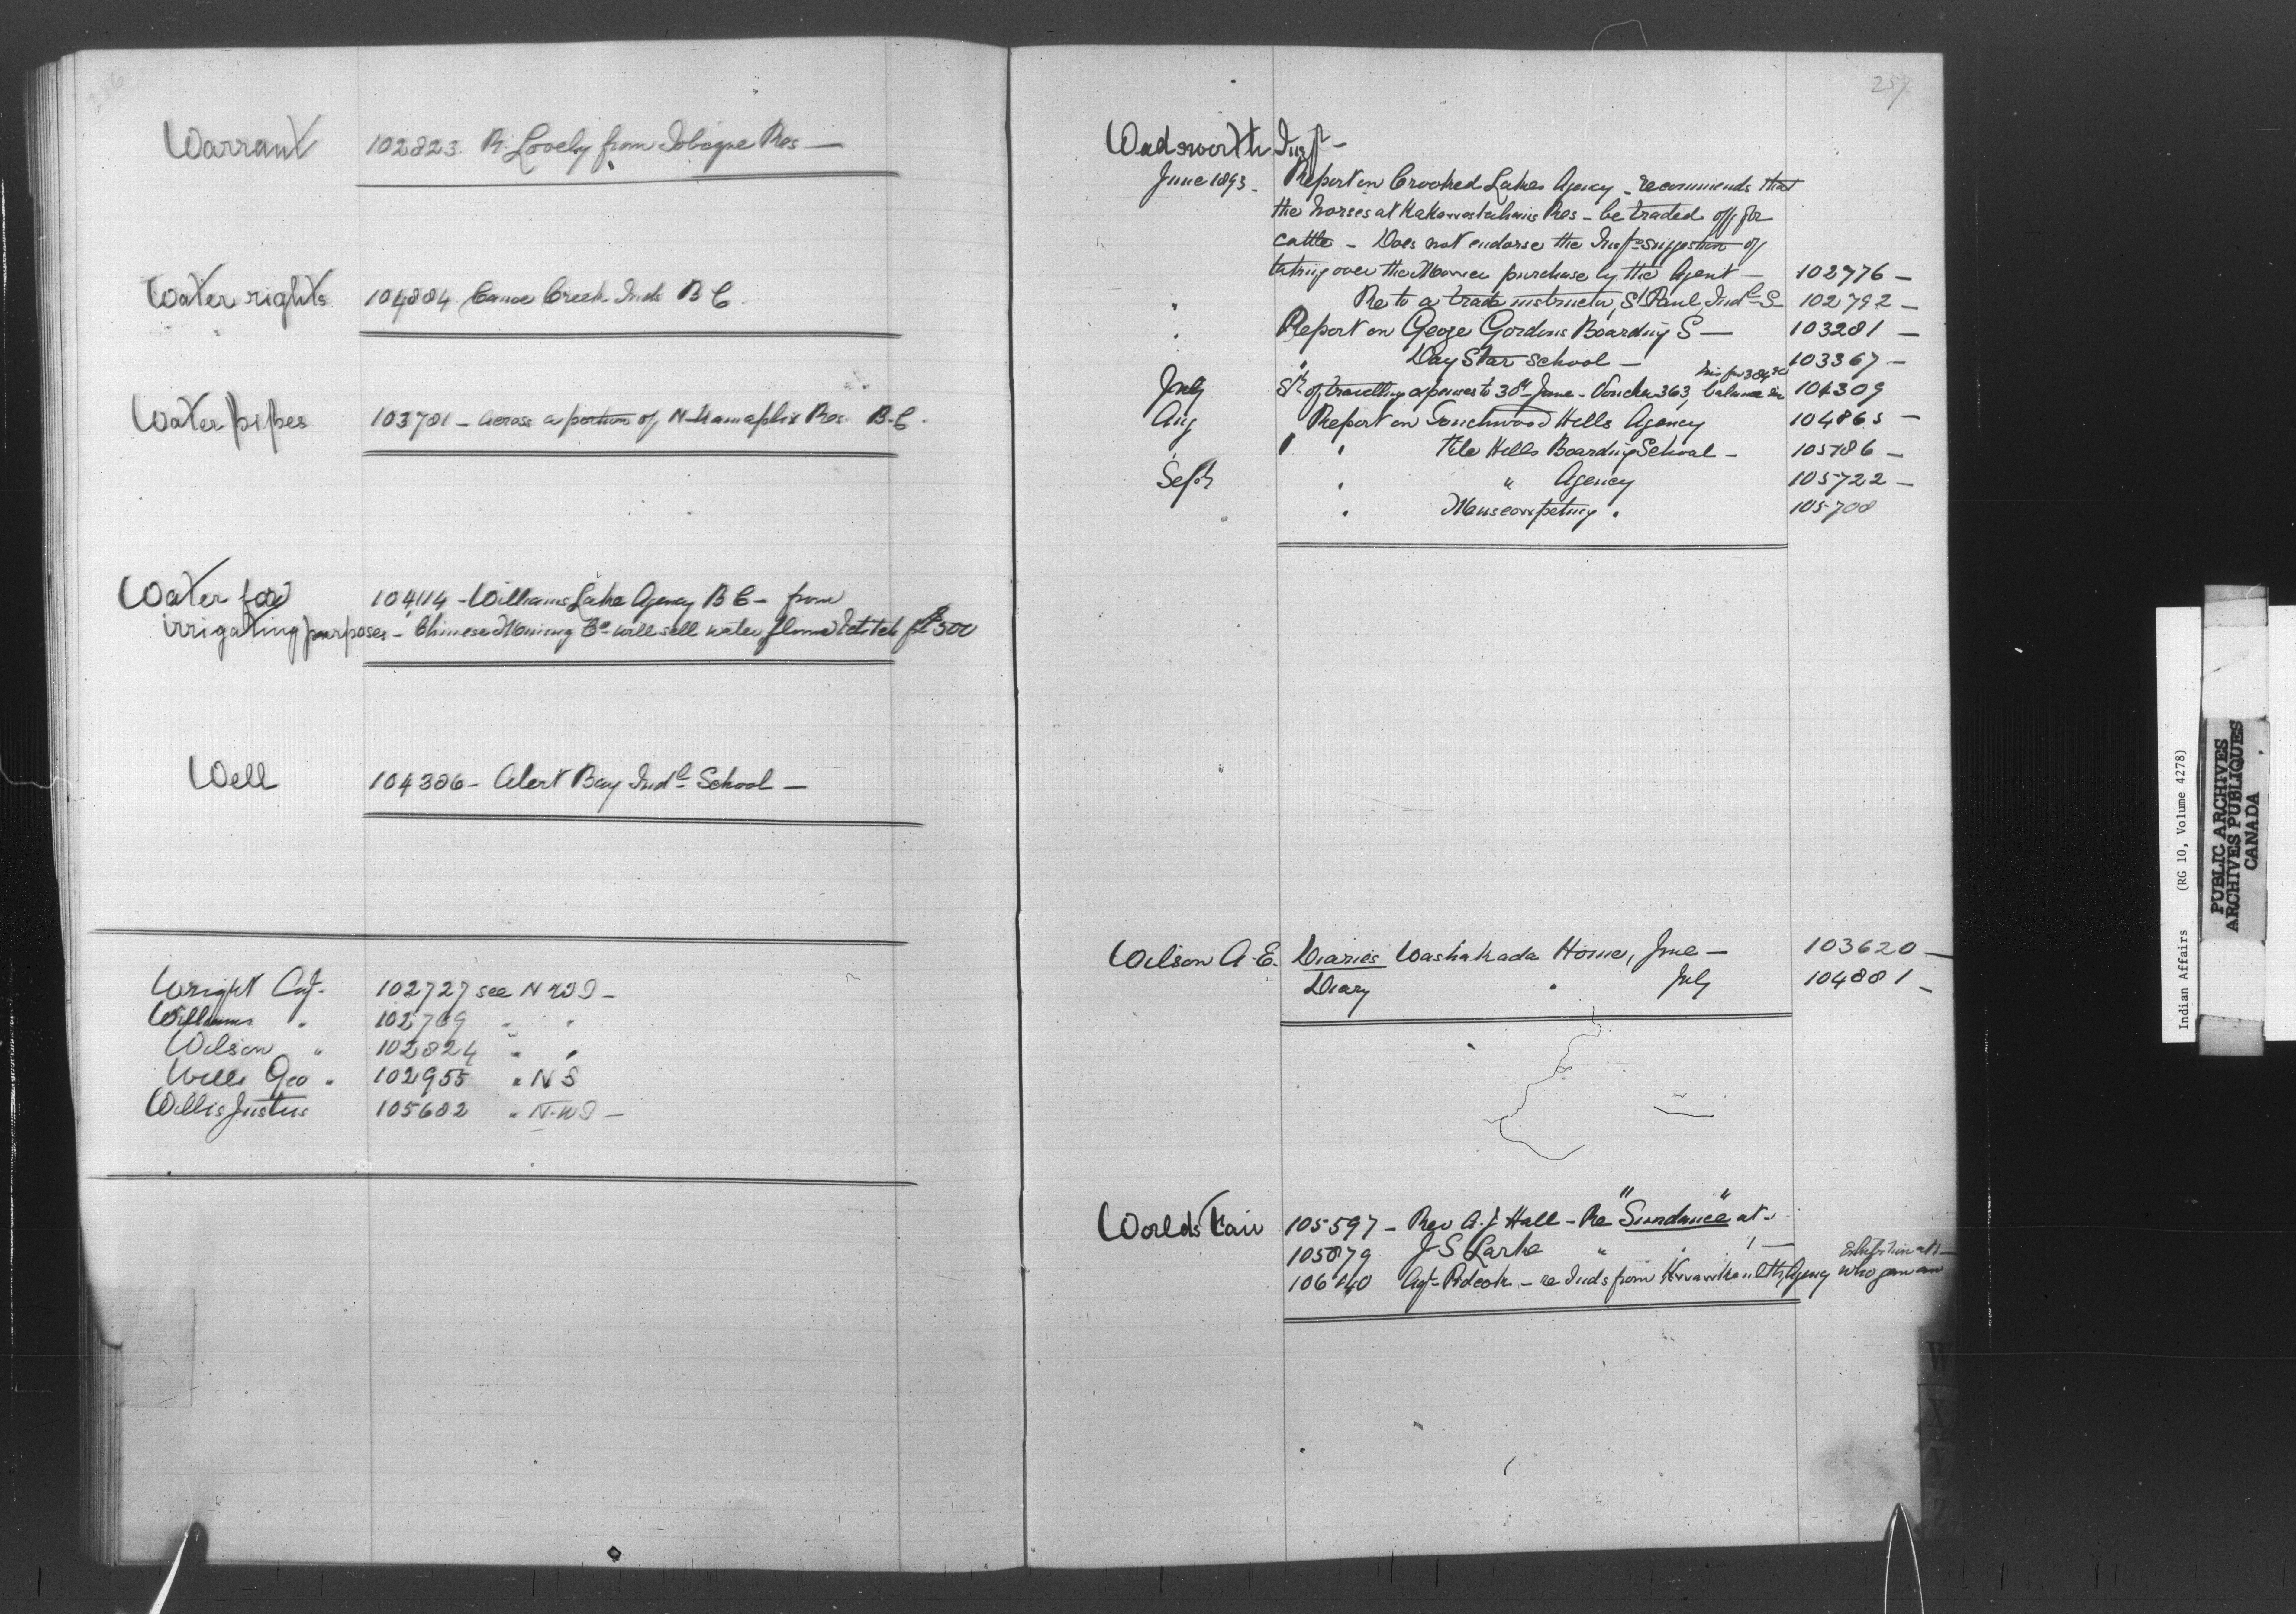 256
Warrant 102823. R. Lovely from Tobique Res —
Water rights 104884 Canoe Creek Inds B C.
Water pipes 103781 — across a portion of N. Res. B.C.
Water for 104114 - Williams Lake Agency B C — from
irrigating purposes — Chinese Mining Co will sell water flume & ditch for $500
Well 104386 — Alert Bay Indl School —
Wright Agt. 102727 see N W T —
Williams " 102769 " "
Wilson " 102824 " "
Wells Geo " 102955 " N S
Willis Justus 105682 " N.W T —
257
Wadsworth Inspr —
June 1893 — Report on Crooked Lakes Agency — recommends that
the horses at Res — be traded off for
cattle — Does not endorse the suggestion of
taking over the purchase by the Agent — 102776 —
" Re to a trade instructor, St Paul Indl S 102792 —
" Report on George Gordons Boarding S — 103281 —
" Day Star School — 103367 —
July St of travelling expenses to 30th June — Voucher 363, balance 104309
Aug Report on Touchwood Hills Agency 104865 —
" " File Hills Boarding School — 105186 —
Sept " " Agency 105722 —
" Muscowpetung " 105708
Wilson A. E. Diaries Washakada Home, June — 103620 —
Diary " July 104881 —
Worlds Fair 105597 — Rev A. J Hall — Re "Sundance" at —
105879 J S Larke " " " —
106140 Agt — Pidcock — re Inds from Kwawkewlth Agency who gave an
Exhibition at —
Indian Affairs (RG 10, Volume 4278)
PUBLIC ARCHIVES
ARCHIVES PUBLIQUES
CANADA
W
X
Y
Z